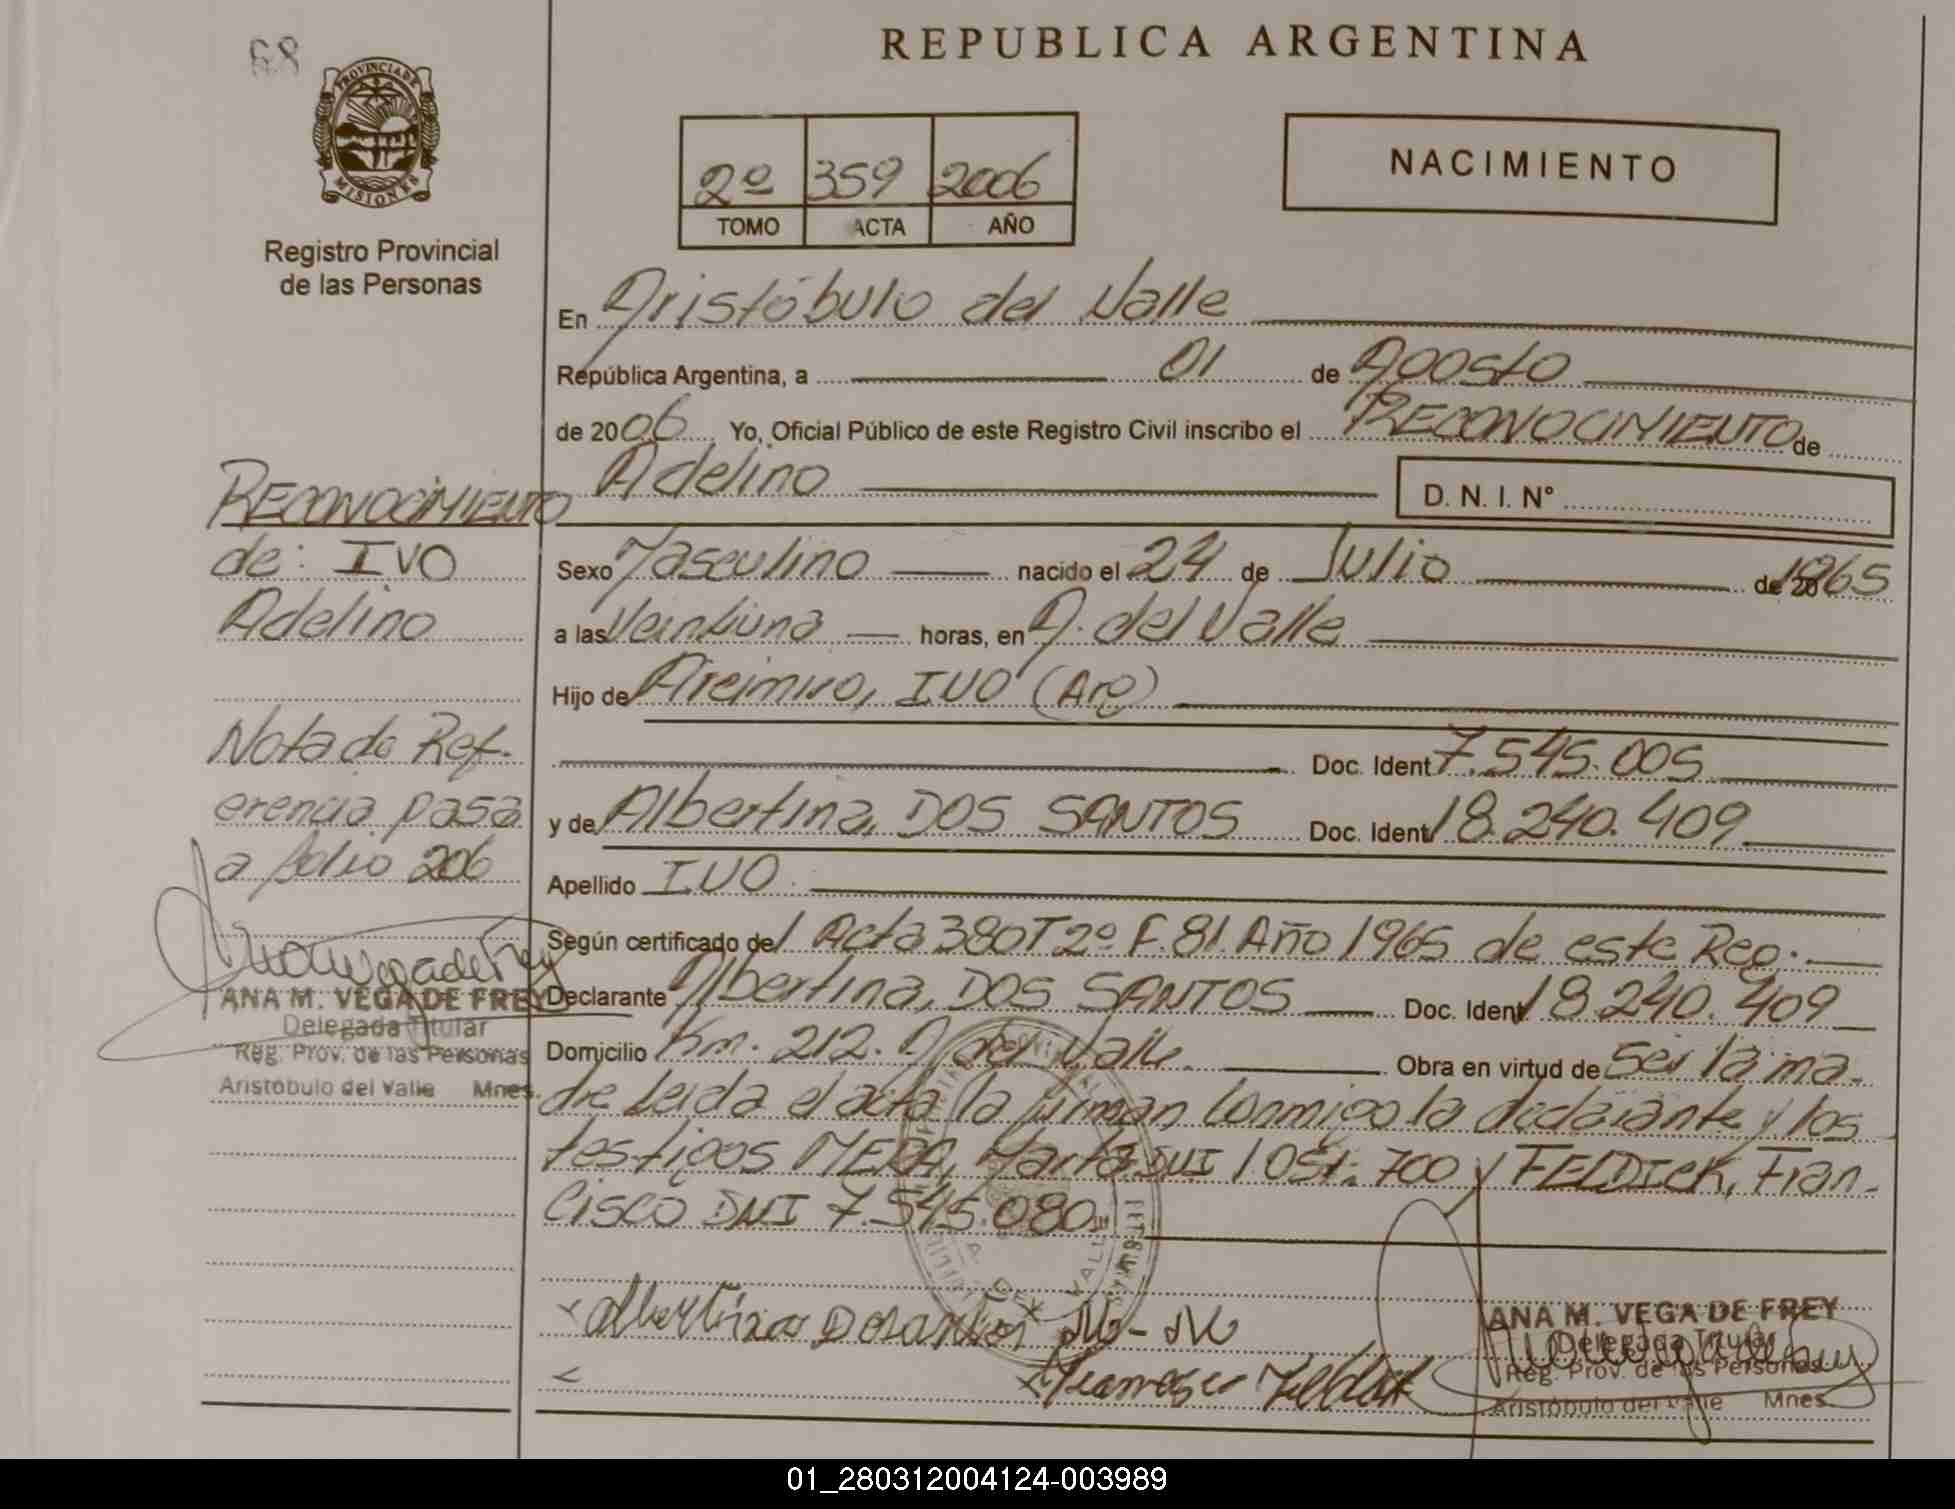 68
REPUBLICA ARGENTINA
PROVINCIA DE
MISIONES
Registro Provincial
de las Personas
2º 359 2006
TOMO ACTA AÑO
NACIMIENTO
En Aristóbulo del Valle
República Argentina, a 01 de Agosto
de 2006 Yo, Oficial Público de este Registro Civil inscribo el RECONOCIMIENTO de
Adelino D. N. I. N°
Sexo Masculino nacido el 24 de Julio de 1965
a las Veintiuna horas, en A. del Valle
Hijo de IVO (Arg)
Doc. Ident 7.545.005
y de Albertina, DOS SANTOS Doc. Ident 18.240.409
Apellido IVO
Según certificado del Acta 380 T 2º F. 81 Año 1965 de este Reg.
Declarante Albertina, DOS SANTOS Doc. Ident 18.240.409
Domicilio Km. 212. A. del Valle Obra en virtud de Ser la ma-
dre Leida el acta la firman conmigo la declarante y los
testigos MERA, Marta DNI 1.051.700 y FELDICK, Fran-
cisco DNI 7.545.080
RECONOCIMIENTO
de: IVO
Adelino
Nota de Ref-
erencia pasa
a folio 206
ANA M. VEGA DE FREY
Delegada Titular
Reg. Prov. de las Personas
Aristóbulo del Valle Mnes.
ANA M. VEGA DE FREY
Delegada Titular
Reg. Prov. de las Personas
Aristóbulo del Valle Mnes
01_280312004124-003989